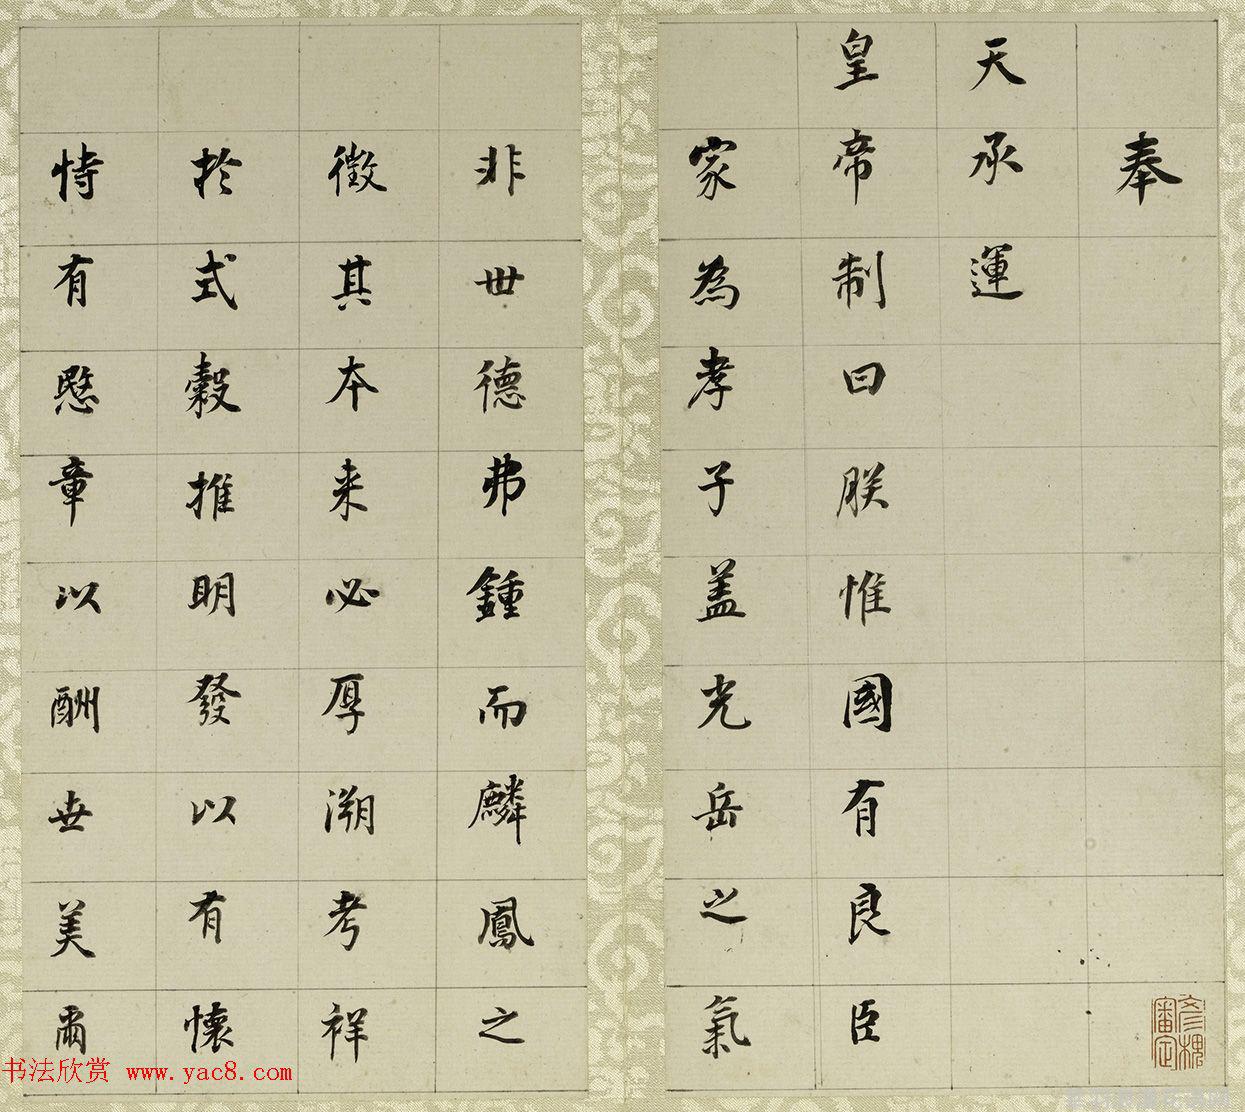 奉
天承運
皇帝制曰朕惟國有良臣
家為孝子盖光岳之氣
非世德弗鍾而麟鳳之
徵其本来必厚溯考祥
於式穀推明發以有懷
恃有愍章以酬世美爾
书法欣赏 www.yac8.com